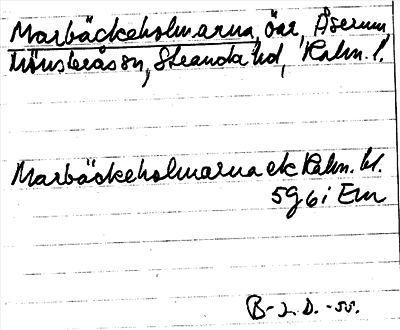 Marbäckeholmarna, öar, Åserum,
Mönsterås sn, Stranda hd, Kalm. l.
Marbäckeholmarna ek Kalm. bl.
5g 6i Em
B-L.D. -55.